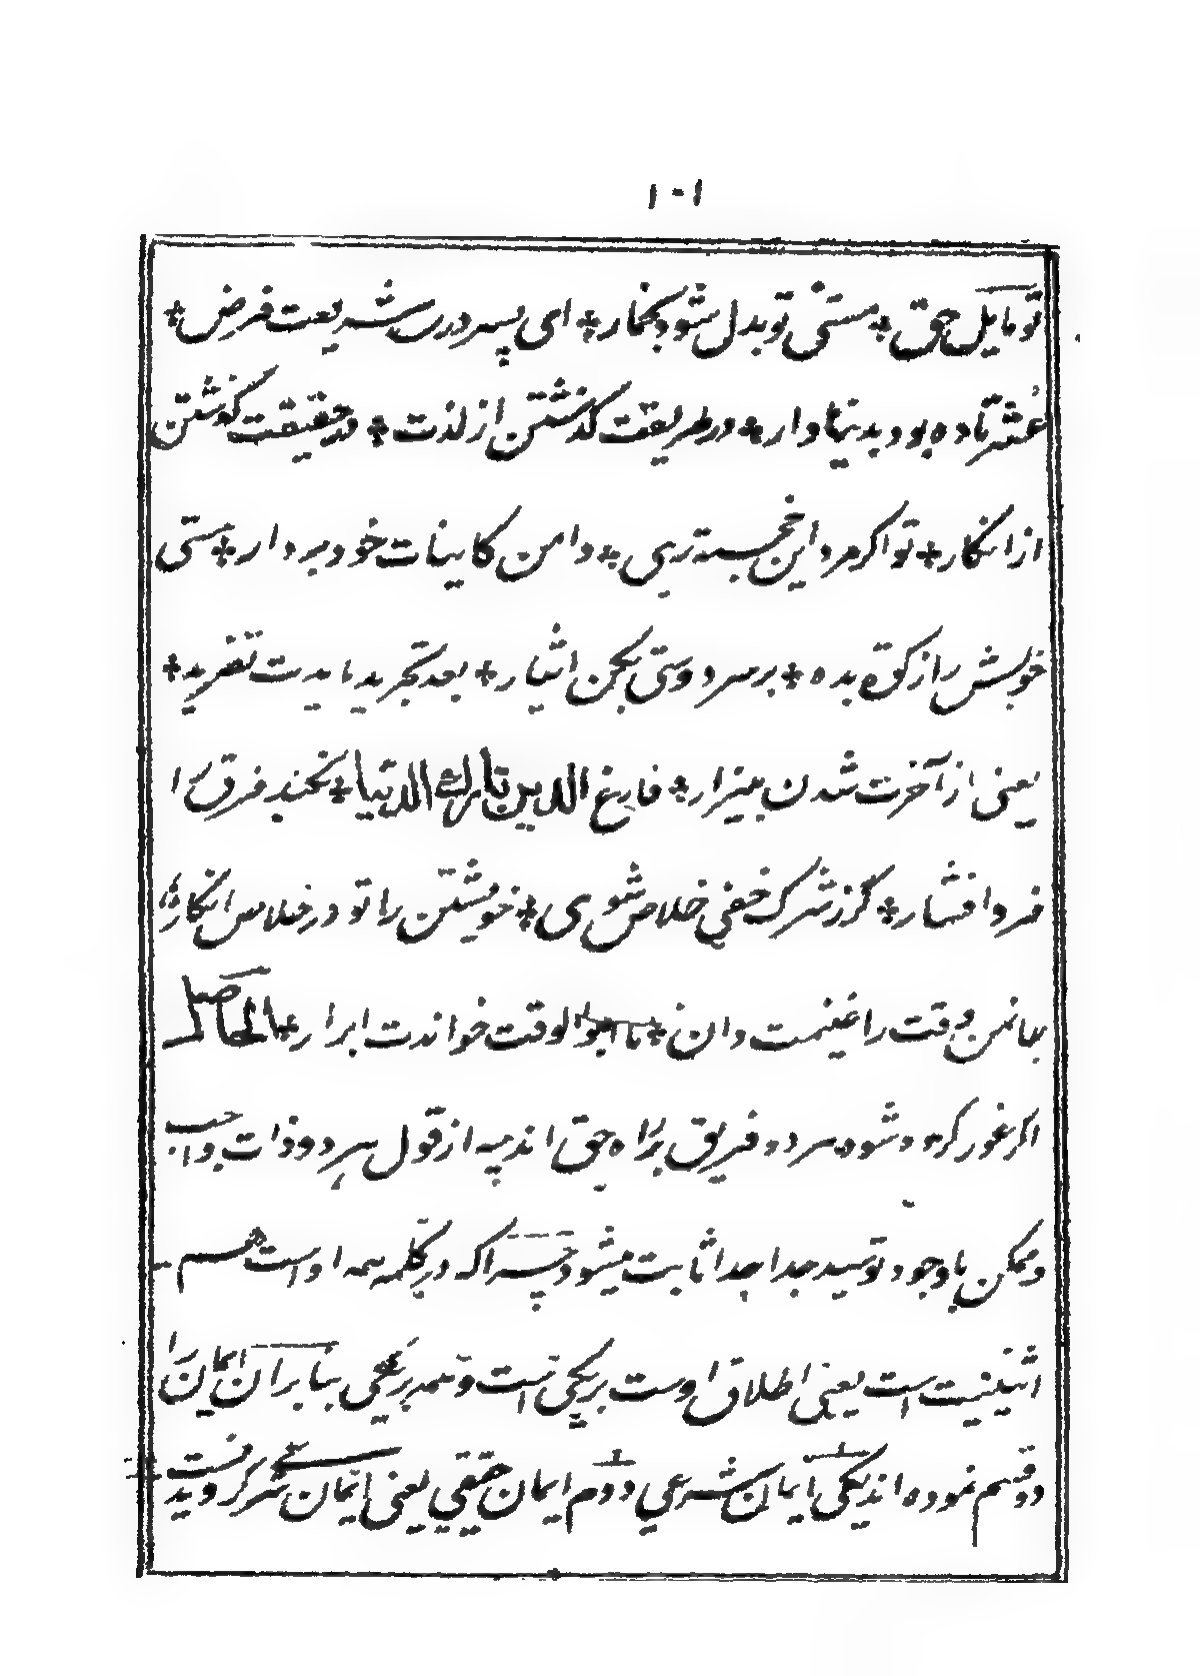 ۱۰۱
تو مایل حق * مستی تو بدل شود بخمار * ای پسر در شریعت فرض *
عشر تا ده بود بدنیا دار * در طریقت گذشتن از لذت * در حقیقت گذشتن
از انکار * تو اگر مرد این خجسته رهی * دامن کاینات خود بردار * هستی
خویش را از کف بده * بر سر دوستی بکن ایثار * بعد تجرید بایدت تفرید *
یعنی از آخرت شدن بیزار * فارغ الدین تارک الدنیا * نکند فرق را
فرد افشار * گر ز شرک خفی خلاص شوی * خویشتن را تو در خلاص انگار
جان من وقت را غنیمت دان * تا ابو الوقت خواندت ابرار * الحاصل
اگر غور کرده شود هر دو فریق براه حق اند چه از قول هر دو ذات واجب
و ممکن باوجود توحید جدا جدا ثابت میشود چراکه در کلمه همه اوست هم
اثنینیت است یعنی اطلاق اوست بر یکی است و همه بر یکی بنابران ایمان را
دو قسم نموده اند یکی ایمان شرعی دوم ایمان حقیقی یعنی ایمان شرع گرویدنست